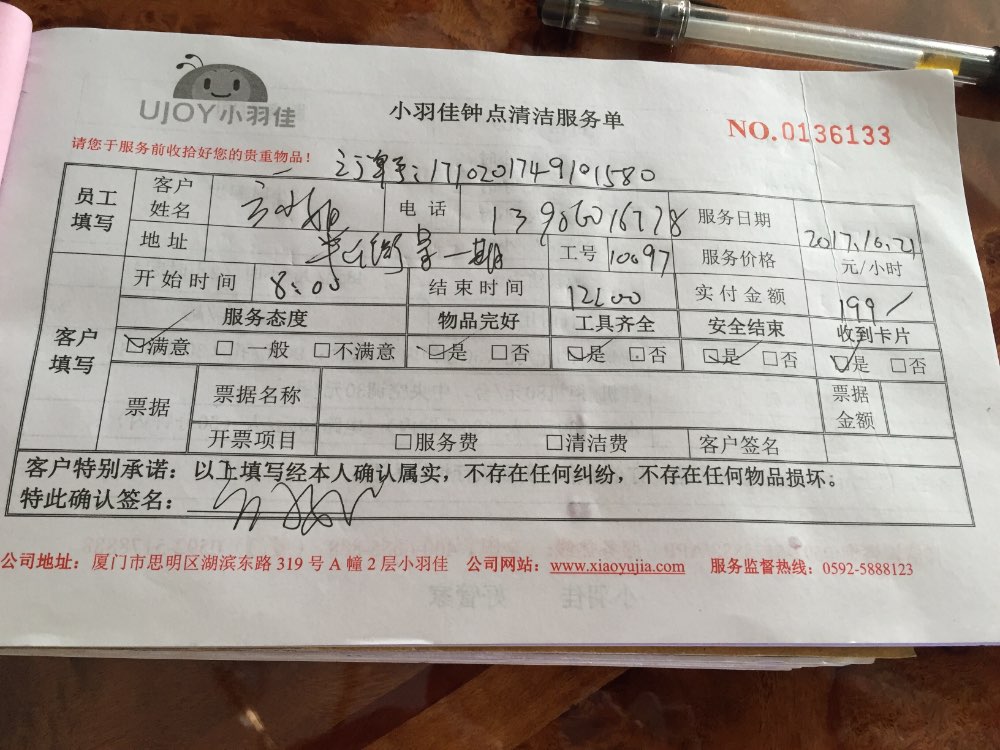 UJOY小羽佳
小羽佳钟点清洁服务单
NO.0136133
请您于服务前收拾好您的贵重物品！
订单号：1710201749101580
员工填写 客户姓名 电话 13906016778 服务日期 2017.10.21
地址 一期 工号 10097 服务价格 元/小时
客户填写 开始时间 8:00 结束时间 12:00 实付金额 199
服务态度 物品完好 工具齐全 安全结束 收到卡片
☑满意 □一般 □不满意 ☑是 □否 ☑是 □否 ☑是 □否 ☑是 □否
票据 票据名称 票据金额
开票项目 □服务费 □清洁费 客户签名
客户特别承诺：以上填写经本人确认属实，不存在任何纠纷，不存在任何物品损坏。
特此确认签名：
公司地址：厦门市思明区湖滨东路 319 号 A 幢 2 层小羽佳 公司网站：www.xiaoyujia.com 服务监督热线：0592-5888123